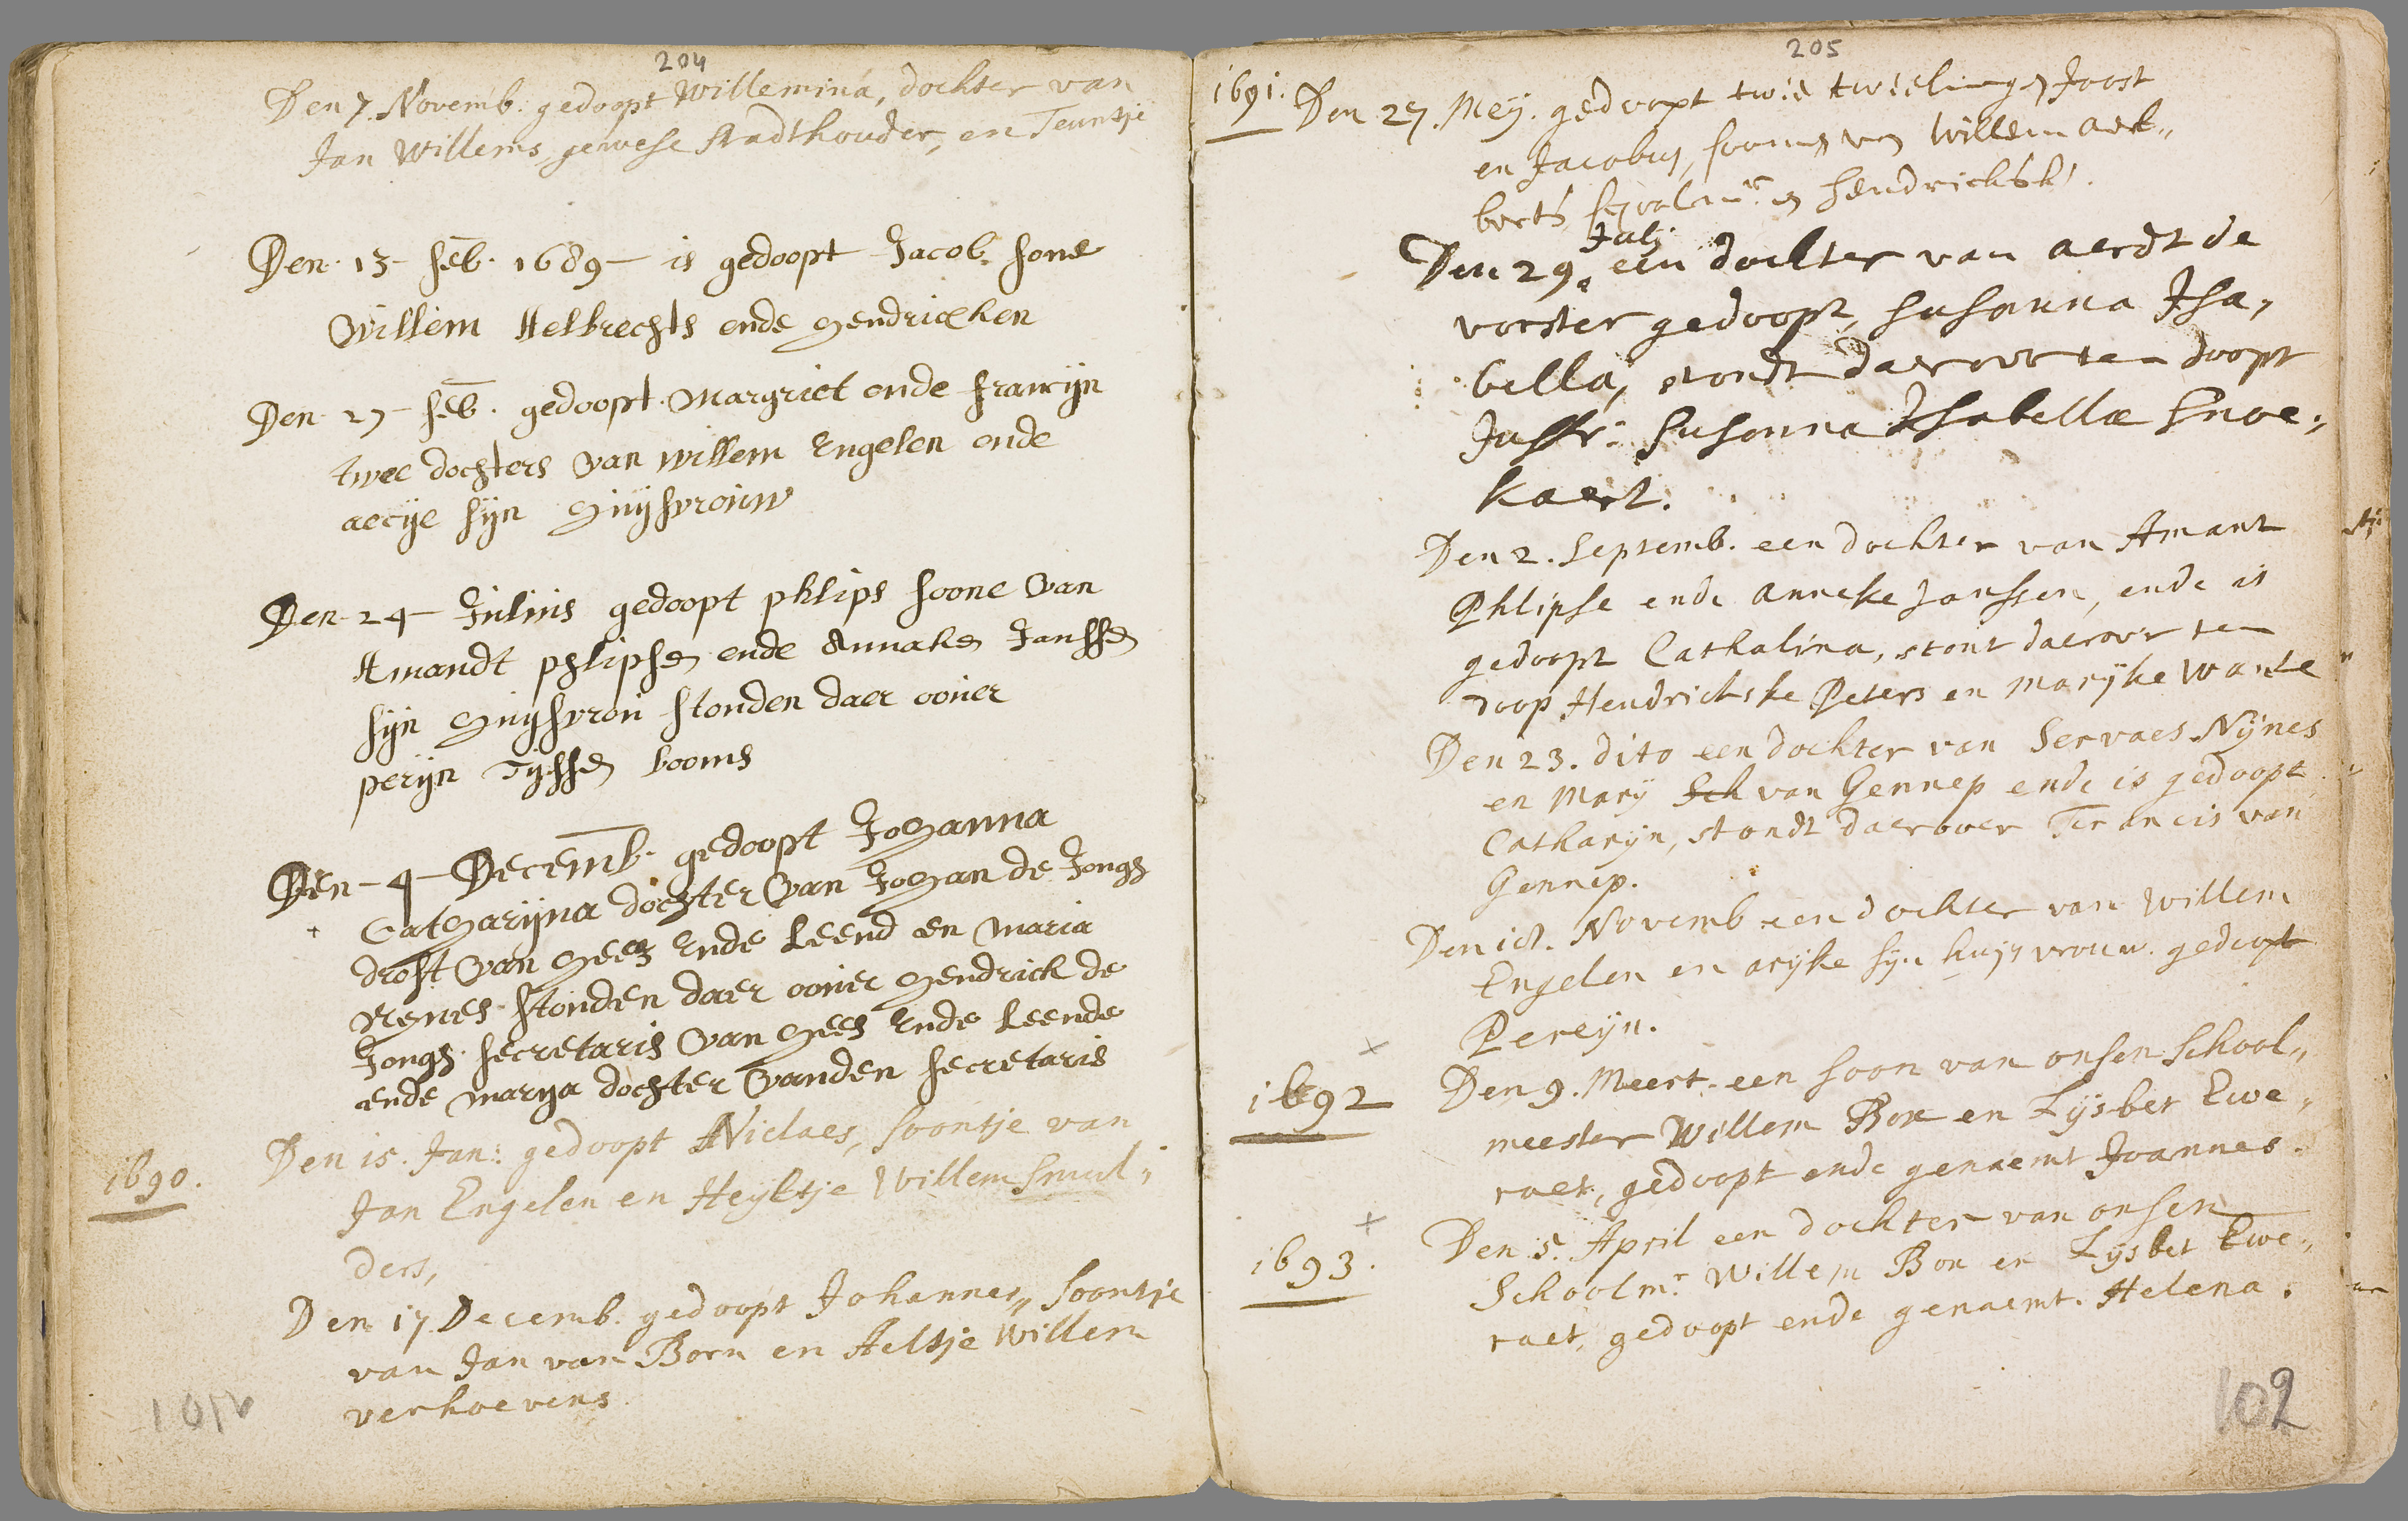 204
Den 7. Novemb. gedoopt Willemina, dochter van
Jan Willems gewese stadthouder, en Teuntje
Den 13 feb. 1689 is gedoopt Jacob sone
Willem Aelbrechts ende Hendricxken
Den 27 feb. gedoopt Margriet ende francijn
twee dochters van willem Engelen ende
aeryе sijn huijsvrouw
Den 24 Julius gedoopt phlips soone van
Amandt phlipsen ende Annaken Janssen
sijn huijsvrou stonden daer oover
perijn Tijssen booms
Den 4 Decemb. gedoopt Johanna
+ Catharijna dochter van Johan de Jongh
drost van Heez Ende Leend en Maria
Agnes stonden daer oover Hendrick de
Jongh secretaris van Hees Ende Leende
ende marya dochter vanden secretaris
1690. Den 15. Jan: gedoopt Niclaes, soontje van
Jan Engelen en Heyltje Willem Smul„
ders,
Den 17 Decemb. gedoopt Johannes, soontje
van Jan van Born en Aeltje Willem
verhoevens
205
1691. Den 27. Meÿ. gedoopt twie twielingen Joost
en Jacobus, soonen van Willem Ael„
berts en Hendricksk.
Den 29. July een dochter van aerdt de
vorster gedoopt, susanna Isa,
bella, stondt daerover ten doopt
Juffr: Susanna Isabella Snoe„
kaert.
Den 2. Septemb. een dochter van Amant
Phlipse ende Anneke Janssen, ende is
gedoopt Cathalina, stont daerov'r ten
doop Hendrickske Peters en Marijke Wante
Den 23. dito een dochter van Servaes Nijnes
en Marij Sch van Gennep ende is gedoopt
Catharijn, stondt daerover Francis van
Gennep.
Den 18. Novemb een dochter van Willem
Engelen en arijke sijn huijsvrouw. gedoopt
Pereijn.
x
1692 Den 9. Meert. een soon van onsen School„
meester Willem Bon en Lijsbet Ewe„
raet, gedoopt ende genaemt Joannes.
x
1693. Den 5. April een dochter van onsen
Schoolmr. Willem Bon en Lijsbet Ewe„
raet, gedoopt ende genaemt. Helena.
102